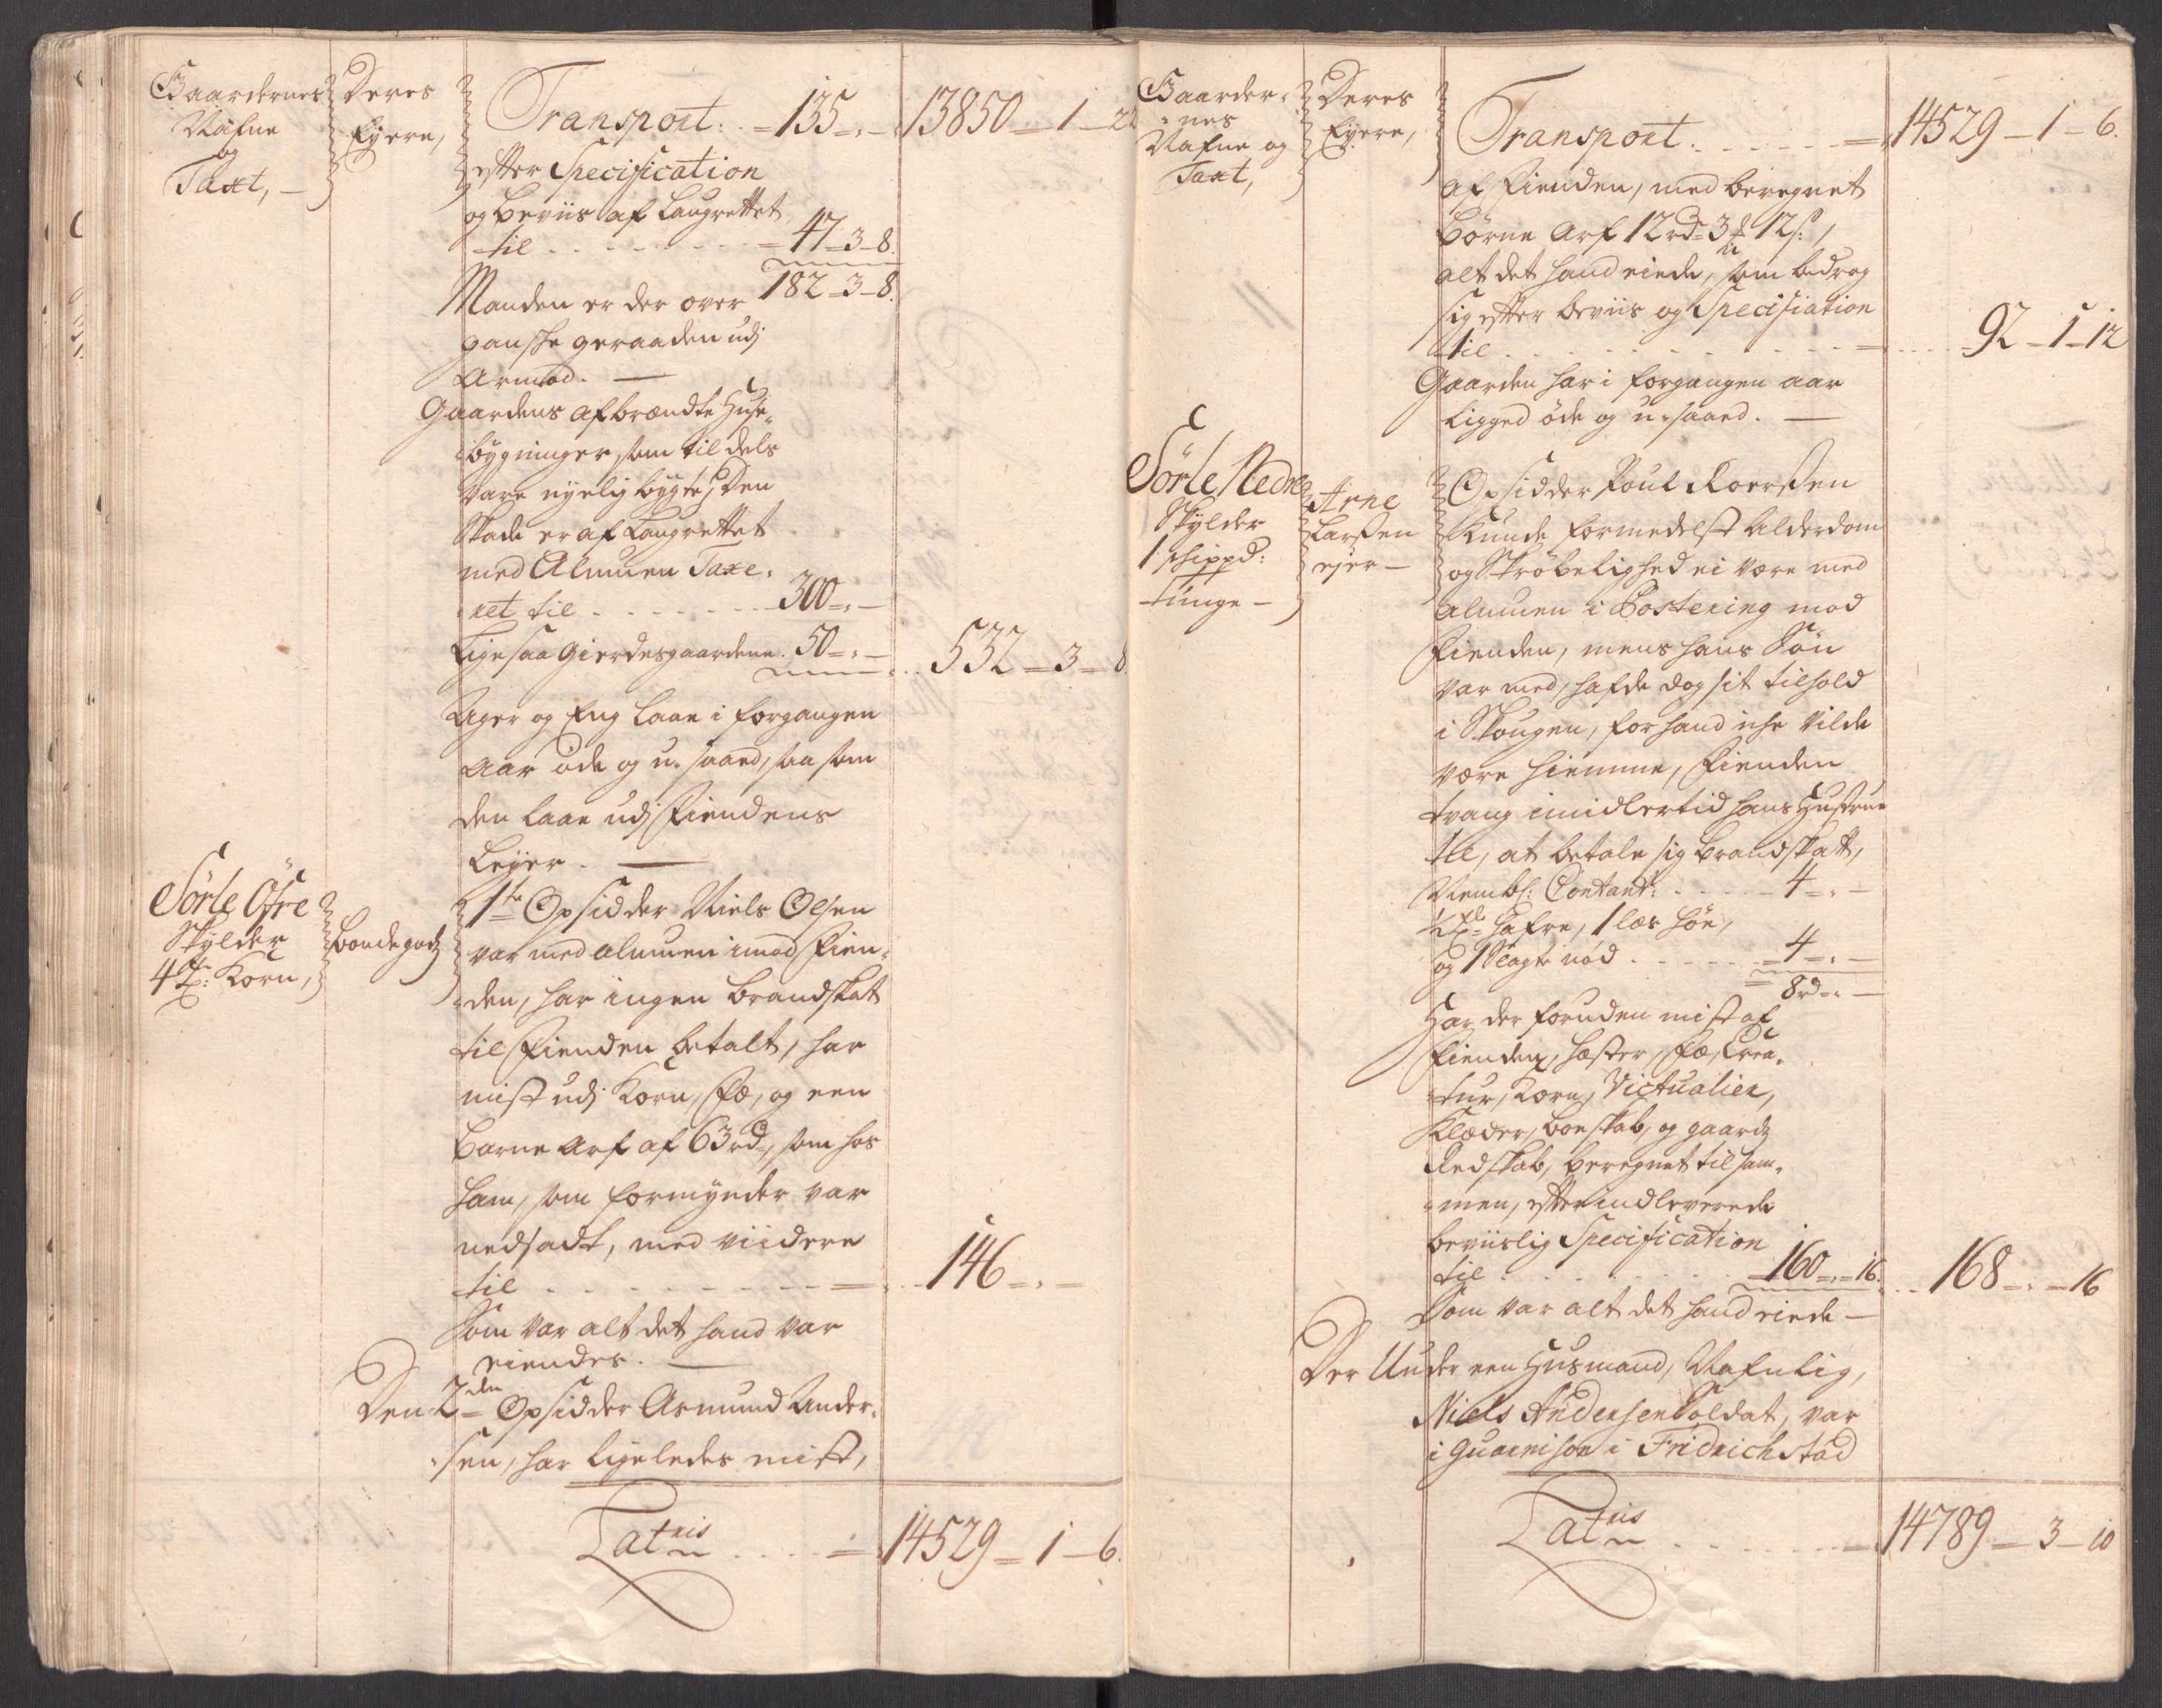 Gaardernes
Nafne
og
Taxt,
Deres
Eyere,
Transport: . = 135 - „ - 13850 - 1 - 22
efter Specification
og beviis af Laugrettet
til . . . . . = 47 - 3 - 8.
182 - 3 - 8.
Manden er der over
gansche geraaden udj
Armod. —
Gaardens afbrændte Huse-
bygninger, som til dels
vare nyelig bygte, Den
Skade er af Laugrettet
med Almuen Taxe-
ret til . . . . . 300 - „ -
Ligesaa Gierdesgaardene . 50 - „ - . . 532 - 3 - 8.
Ager og Eng laae i forgangen
Aar øde og u-saaed, saa som
den laae udj Fiendens
Leyer. —
Sörle Öfre
Skylder
4 Tr: Korn,
bondegodz
1te Opsidder Niels Olsen
var med almuen imod Fien-
den, har ingen brandskat
til Fienden betalt, har
mist udj Korn, Fæ, og een
Barne Arf af 63 rd, som hos
ham, som formynder var
nedsadt, med viidere
til . . . . . = . . 146 - „ -
Som var alt det hand var
eiendes. —
Den 2den Opsidder Asmund Ander-
sen, har ligeledes mist,
Latris . . . = 14529 - 1 - 6.
Gaarder-
nes
Nafne og
Taxt,
Deres
Eyere,
Transport . . . . . = 14529 - 1 - 6.
af Fienden, med beregnet
Börne Arf 12 rd 3 ꝑ 12 s:,
alt det hand eiede, som bedrog
sig efter beviis og Specifiation
til . . . . . = . . . 92 - 1 - 12
Gaarden har i forgangen aar
ligged öde og u-saaed. —
Sörle Nedre
Skylder
1 schippd:
tunge -
Arne
Larsen
ejer -
Opsidder Poul Roersen
Kunde formedelst Alderdom
og Skröbelighed ei være med
Almuen i Postering mod
Fienden, mens hans Sön
var med, hafde dog sit tilhold
i Skougen, for hand iche vilde
være hiemme, Fienden
tvang imidlertid hans Hustrue
til, at betale sig brandskatt,
Nembl: Contant: . . . . 4 - „ -
hafre, 1 læs höe,
og 1 Slagte nöd . . . . = 4 - „ -
8 rd - „ -
Har der foruden mist af
Fienden, hester, Fæ, Crea-
tur, Korn, Victualier,
Klæder, boeskab, og gaardz
Redskab, beregnet tilsam-
men, efter indleverede
beviislig Specification
til . . . . . 160 - „ - 16. . . 168 - „ - 16
Som var alt det hand eiede —
Der Under een Huusmand, Nafnlig,
Niels Andersen Soldat, var
i Guarnison i Fridrichstad
Latris . . . . . = 14789 - 3 - 10